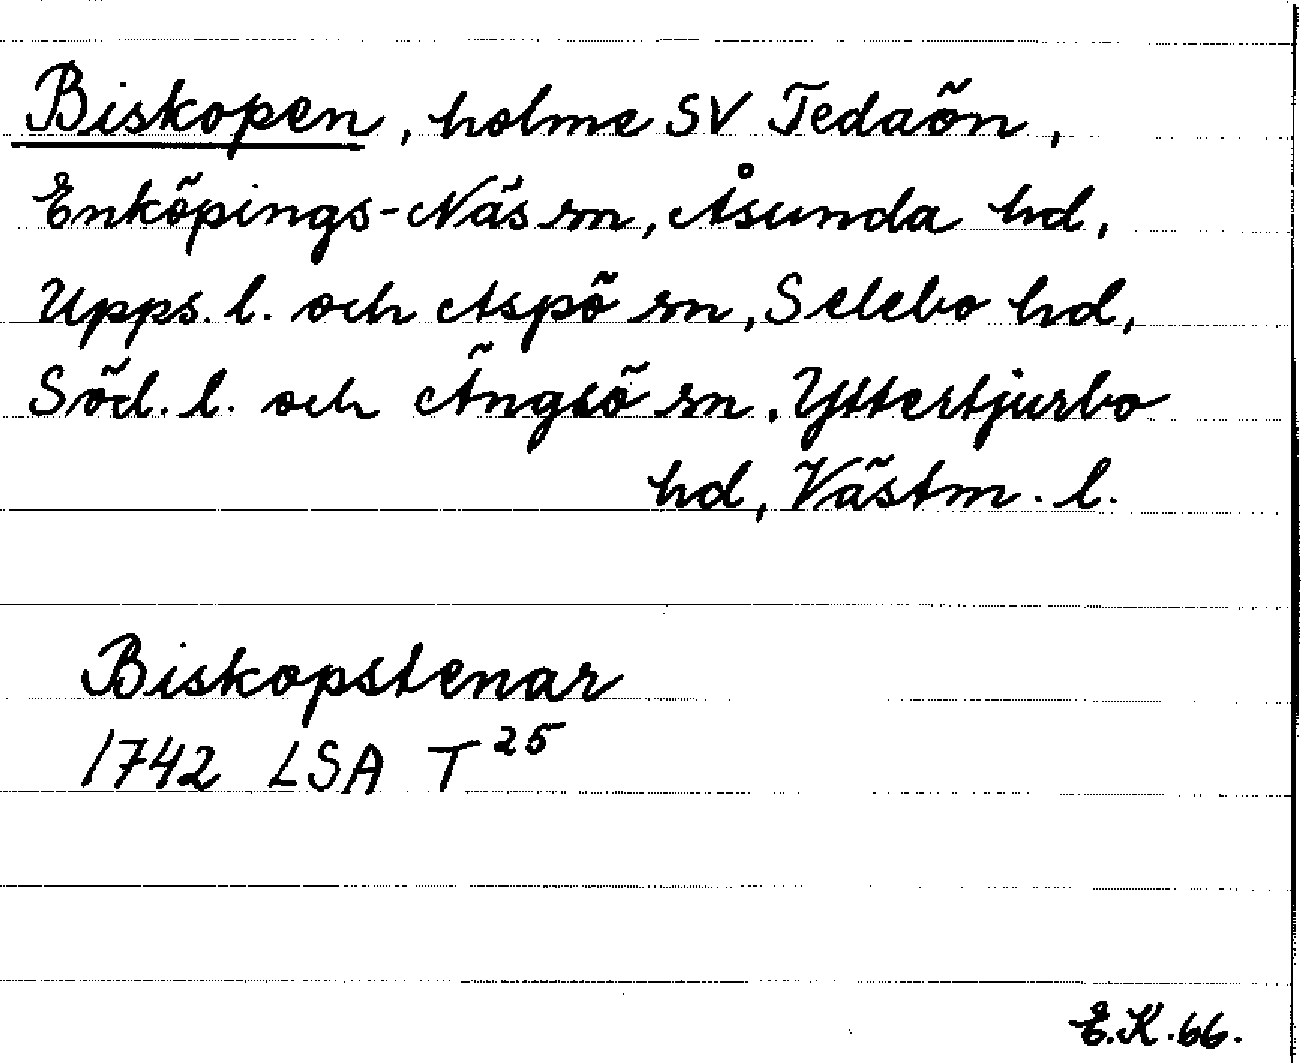 Biskopen, holme SV Tedaön,
Enköpings-Näs sn, Åsunda hd,
Upps. l. och Aspö sn, Selebo hd,
Söd. l. och Ängsö sn, Yttertjurbo
hd, Västm. l.
Biskopstenar
1742 LSA T²⁵
E.K. 66.